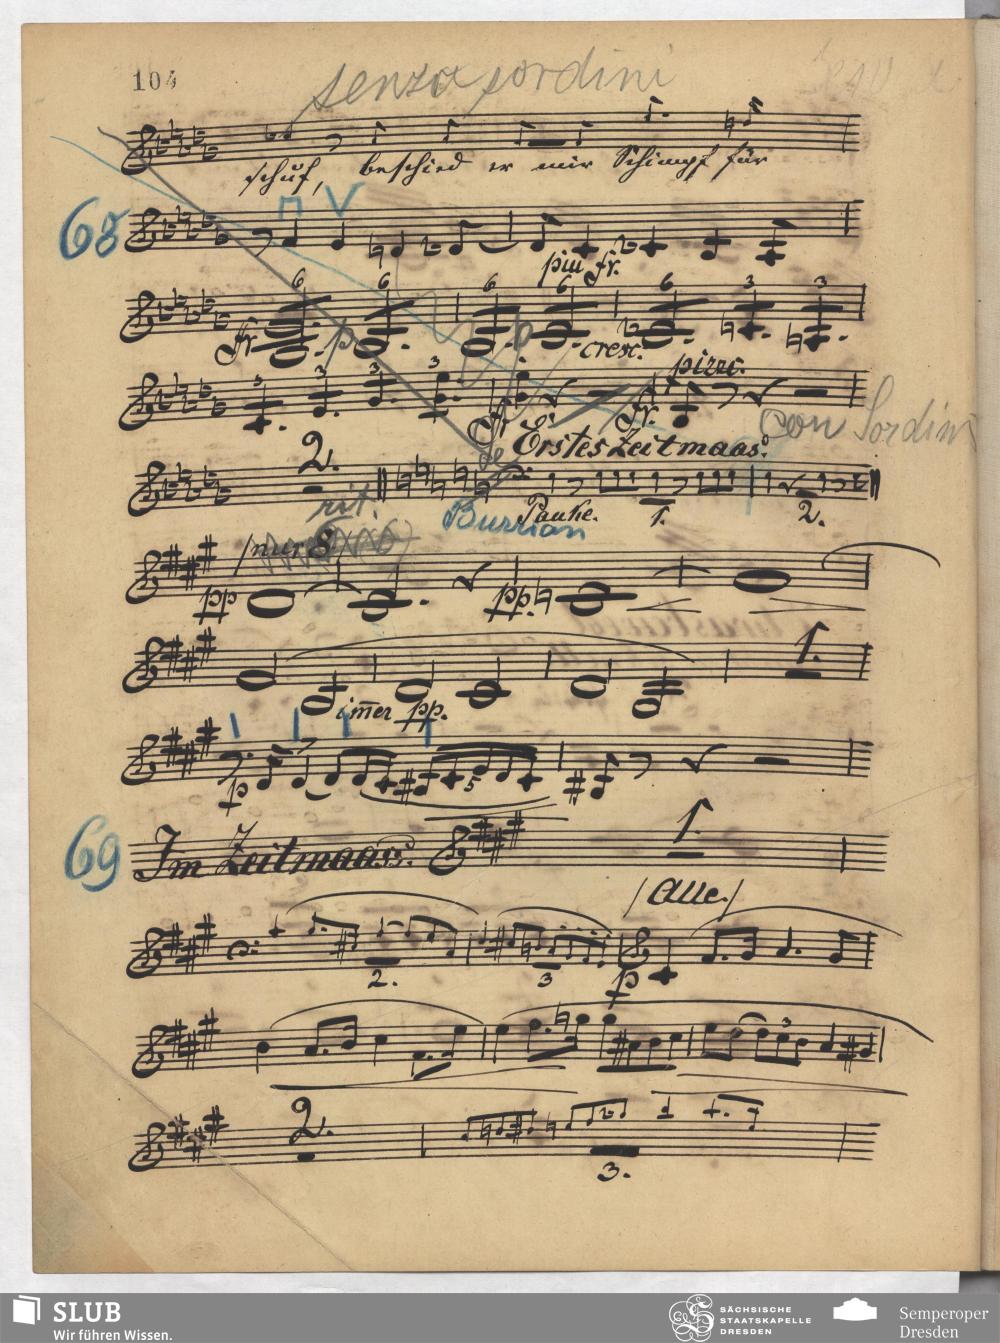 104
senza sordini
schuf, beschied er mir Schimpf für
68
piu fr.
6 6 6 6 6 3 3
fr. p cresc.
3 3 3 3
pizz.
fr.
con Sordini
Erstes Zeitmaas.
2.
rit.
Pauke. 1. 2.
Burrian
pp pp.
1.
immer pp.
p 5
69 Im Zeitmaas. 1.
/Alle/
2. 3 p
3
2.
3.
SLUB
Wir führen Wissen.
SÄCHSISCHE
STAATSKAPELLE
DRESDEN
Semperoper
Dresden